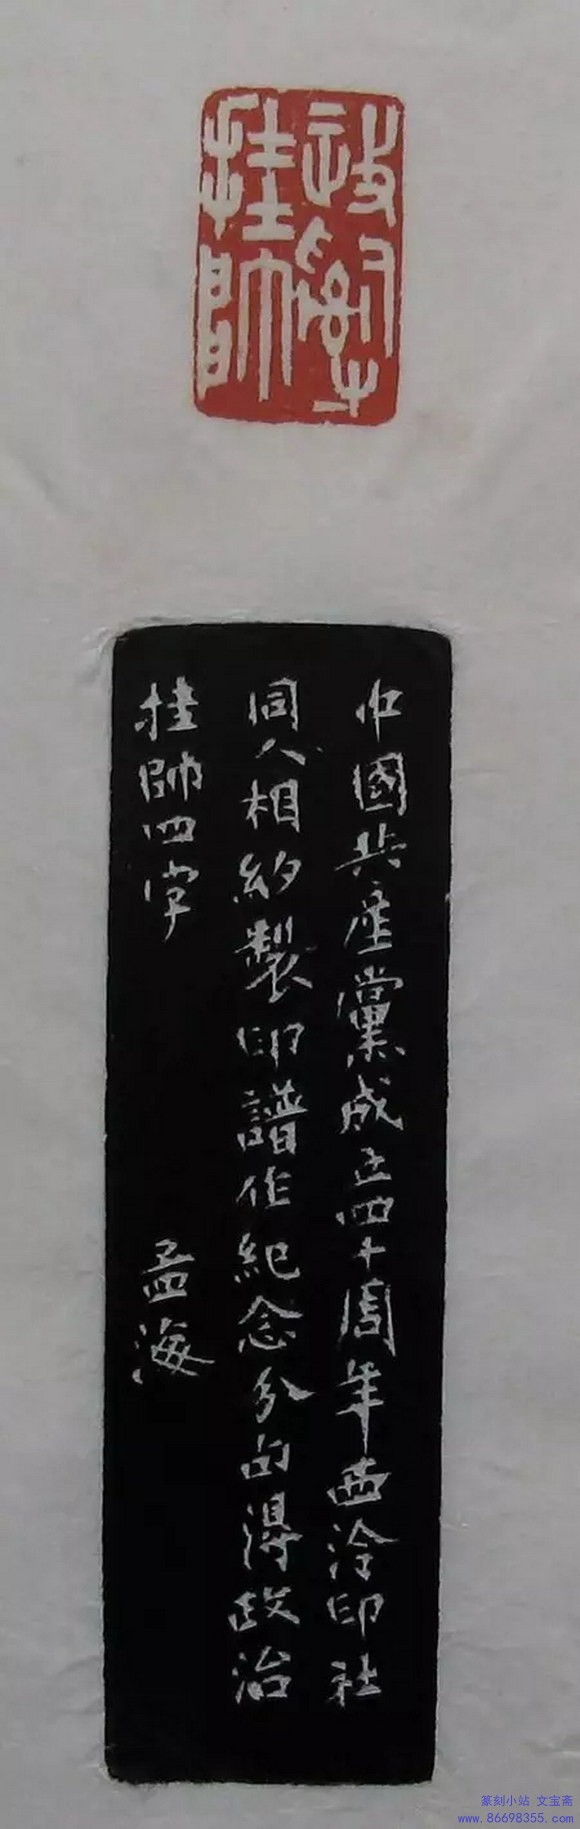 政治
挂帥
中國共產黨成立四十周年西泠印社
同人相約製印譜作紀念分句得政治
挂帥四字 孟海
篆刻小站 文宝斋
www.86698355.com